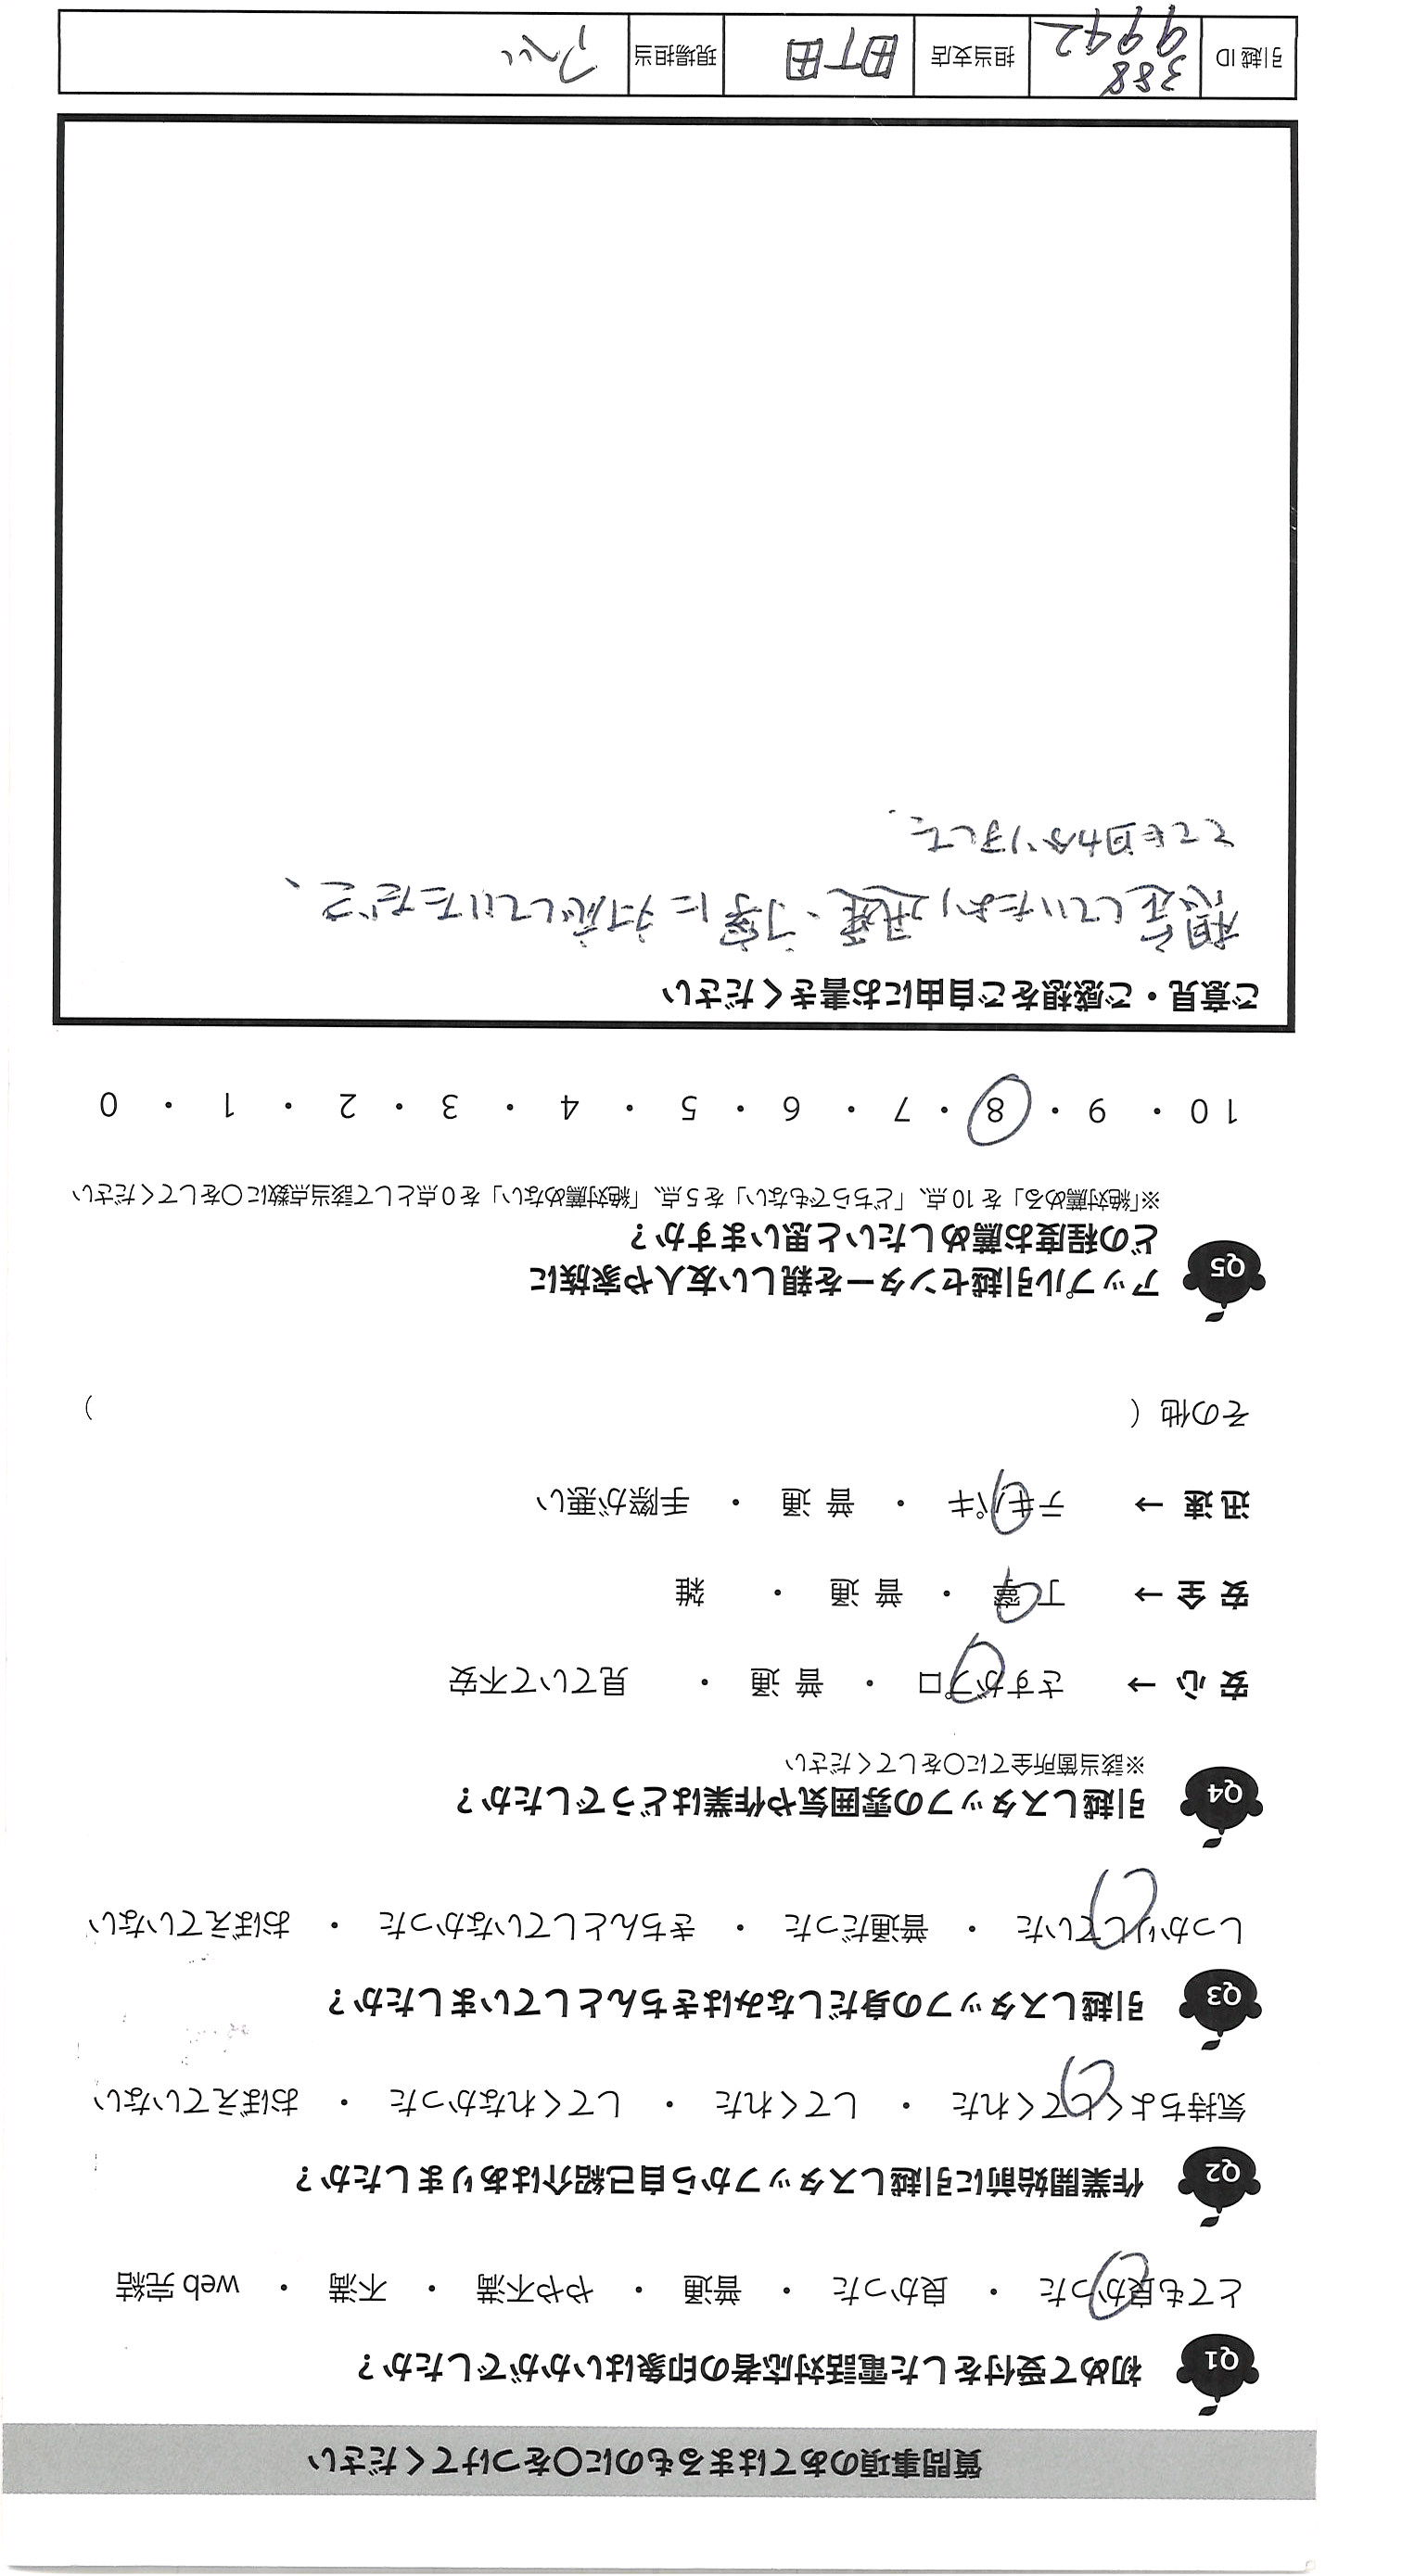 質問事項のあてはまるものに〇をつけてください
Q1 初めて受付をした電話対応者の印象はいかがでしたか？
とても良かった ・ 良かった ・ 普通 ・ やや不満 ・ 不満 ・ web 完結
Q2 作業開始前に引越しスタッフから自己紹介はありましたか？
気持ちよくしてくれた ・ してくれた ・ してくれなかった ・ おぼえていない
Q3 引越しスタッフの身だしなみはきちんとしていましたか？
しっかりしていた ・ 普通だった ・ きちんとしていなかった ・ おぼえていない
Q4 引越しスタッフの雰囲気や作業はどうでしたか？
※該当箇所全てに〇をしてください
安心 → さすがプロ ・ 普通 ・ 見ていて不安
安全 → 丁寧 ・ 普通 ・ 雑
迅速 → テキパキ ・ 普通 ・ 手際が悪い
その他（ ）
Q5 アップル引越センターを親しい友人や家族に
どの程度お薦めしたいと思いますか？
※「絶対薦める」を10点、「どちらでもない」を5点、「絶対薦めない」を0点として該当点数に〇をしてください
10 ・ 9 ・ 8 ・ 7 ・ 6 ・ 5 ・ 4 ・ 3 ・ 2 ・ 1 ・ 0
ご意見・ご感想をご自由にお書きください
想定していたより迅速、丁寧に対応していただき、
とても助かりました。
引越ID 388 9942 担当支店 町田 現場担当